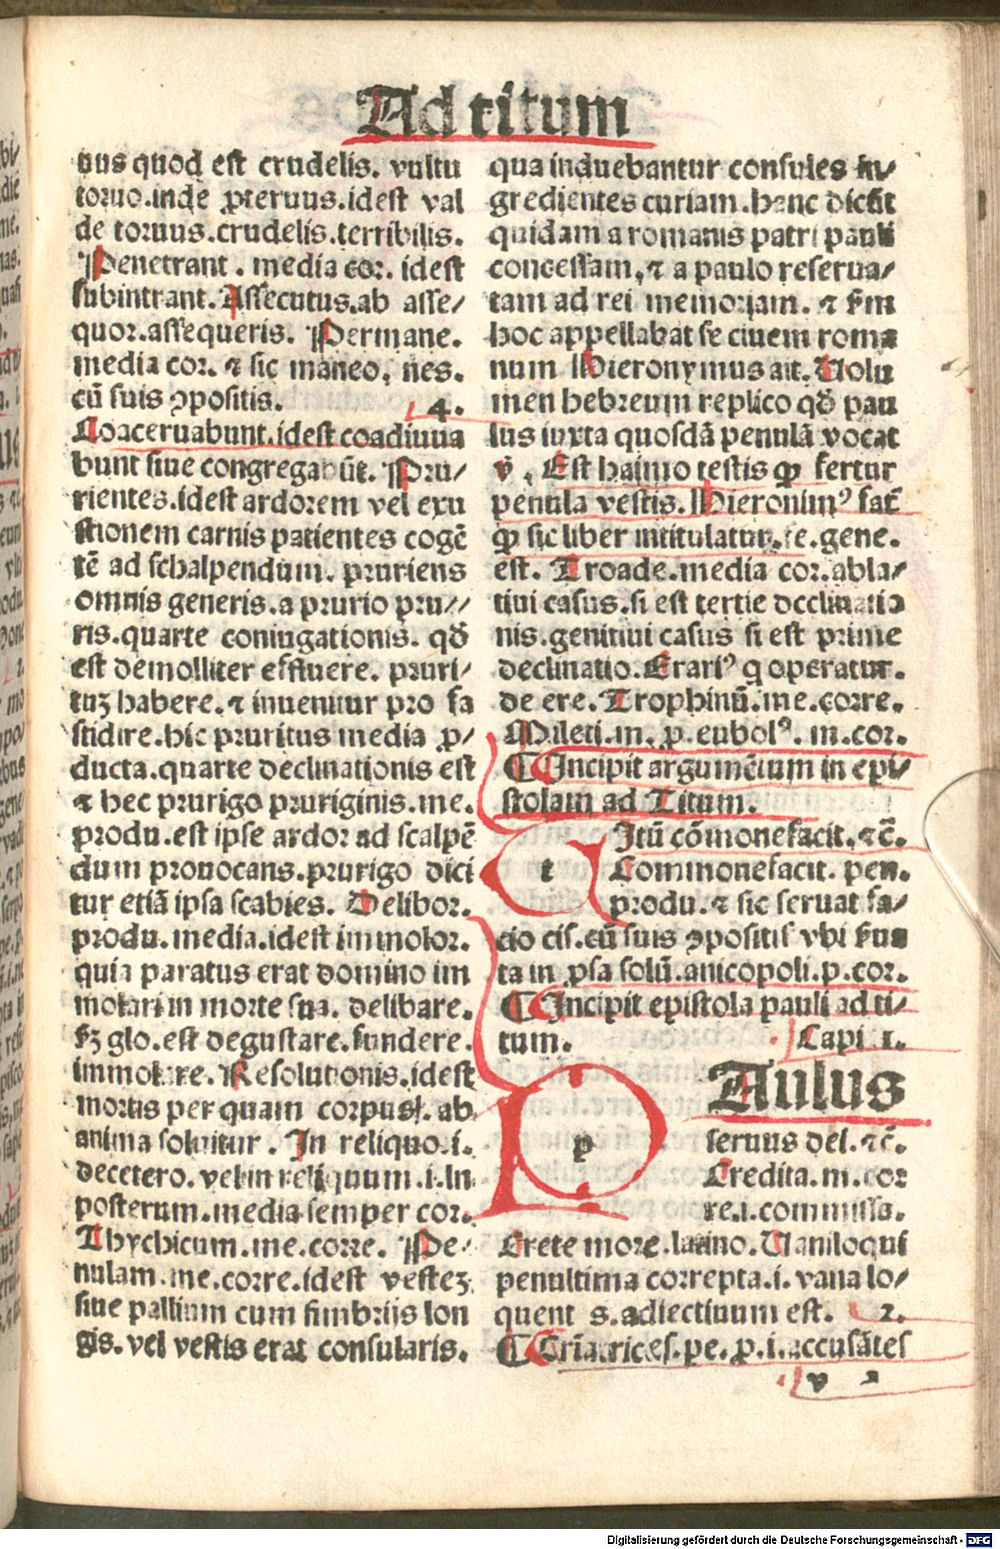 Ad titum
uus quod est crudelis. vultu
toruo.inde ꝓteruus.idest val
de toruus.crudelis.terribilis.
Penetrant. media cor. idest
subintrant. Assecutus.ab asse/
quor.assequeris. Permane.
media cor. ⁊ sic maneo, nes.
cū suis ꝯpositis. 4.
Coaceruabunt.idest coadiuua
bunt siue congregabūt. Pru/
rientes.idest ardorem vel exu
stionem carnis patientes cogē
tē ad schalpendum. pruriens
omnis generis.a prurio pru//
ris.quarte coniugationis. qđ
est demolliter effluere. pruri/
tuꝫ habere. ⁊ inuenitur pro fa
stidire.hic pruritus media ꝓ/
ducta.quarte declinationis est
⁊ hec prurigo pruriginis.me.
produ.est ipse ardor ad scalpē
dum prouocans.prurigo dici
tur etiā ipsa scabies. Delibor.
produ.media.idest immolor.
quia paratus erat domino im
molari in morte sua. delibare.
fꝫ glo.est degustare.fundere.
immolare. Resolutionis.idest
mortis per quam corpus. ab
anima soluitur. In reliquo.i.
decetero. vel in reliquum.i.in
posterum.media semper cor.
Thychicum.me.corre. Pe/
nulam.me.corre.idest vesteꝫ
siue pallium cum fimbrijs lon
gis. vel vestis erat consularis.
qua induebantur consules in/
gredientes curiam.hanc dicūt
quidam a romanis patri pauli
concessam, ⁊ a paulo reserua/
tam ad rei memoriam. ⁊ fm
hoc appellabat se ciuem roma
num Hieronymus ait. Uolu
men hebreum replico qđ pau
lus iuxta quosdā penulā vocat
v̄. Est haimo testis ꝙ fertur
penula vestis. Hieronimꝰ fat̄
ꝙ sic liber intitulatur. fe.gene.
est. Troade.media cor.abla/
tiui casus.si est tertie declinatio
nis.genitiui casus si est prime
declinatio. Erariꝰ q operatur.
de ere. Trophinū.me.corre.
Mileti.m. p. eubolꝰ. m.cor.
¶ Incipit argumētum in epi/
stolam ad Titum.
t Itū cōmonefacit. ⁊c̄.
Commonefacit. pen.
produ. ⁊ sic seruat fa/
cio cis.cū suis ꝯpositis vbi
ta in ꝓsa solū.anicopoli.p.cor.
¶ Incipit epistola pauli ad ti/
tum. Capi 1.
p AUlus
seruus dei. ⁊c̄.
Credita.m.cor
re.i.commissa.
Crete more.latino. Uaniloqui
penultima correpta.i.vana lo/
quent s.adiectiuum est. 2.
¶ Criatrices.pe.ꝓ.i.accusātes
v 2